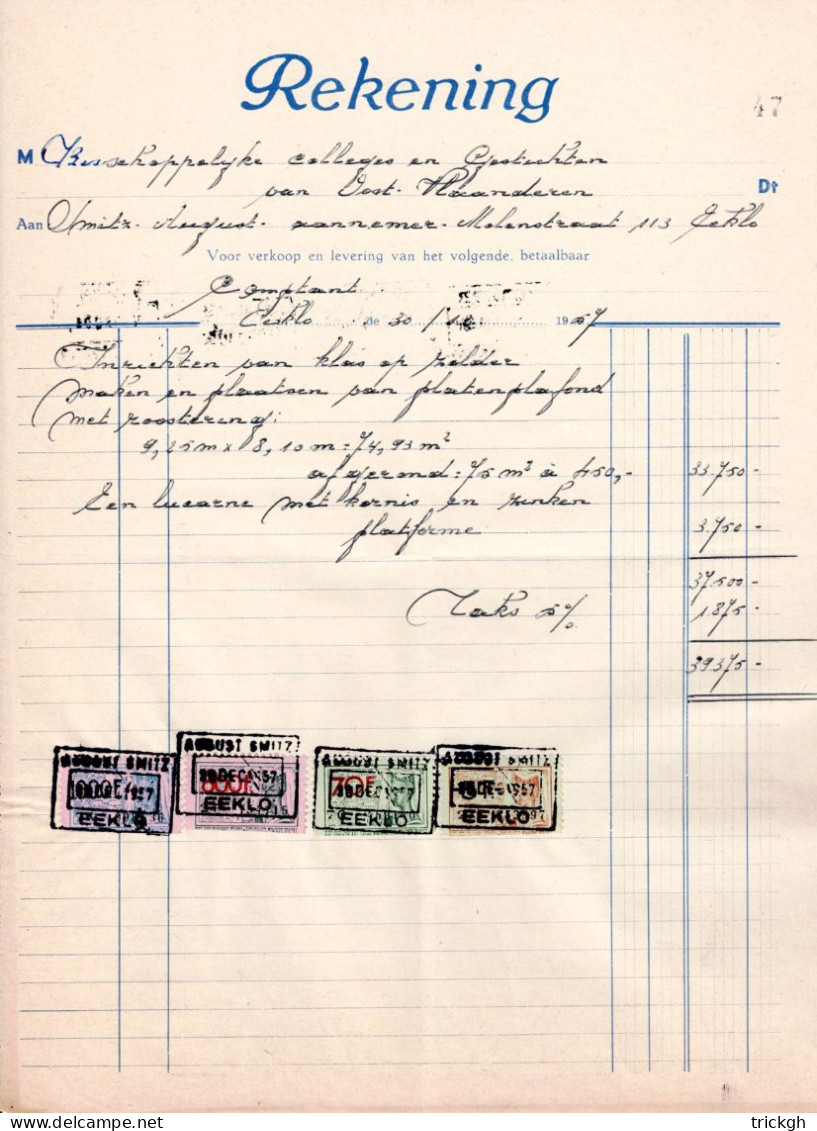 Rekening
47
M Bisschoppelyke colleges en Gestichten
van Oost-Vlaanderen Dt
Aan Smitz August aannemer Molenstraat 113 Eeklo
Voor verkoop en levering van het volgende, betaalbaar
Comptant
Eeklo de 30/12 1957
Inrichten van klas op zolder
maken en plaatsen van platenplafond
met roostering:
9,25m x 8,10m = 74,93 m²
afgerond: 75 m² à 450,- 33.750-
Een lucarne met kornis en zinken
platforme 3.750-
37.500-
Taks 5% 1.875-
39375-
AUGUST SMITZ AUGUST SMITZ AUGUST SMITZ AUGUST SMITZ
800F 70F 5F
30 DEC 1957 30 DEC 1957 30 DEC 1957 30 DEC 1957
EEKLO EEKLO EEKLO EEKLO
delcampe.net
trickgh